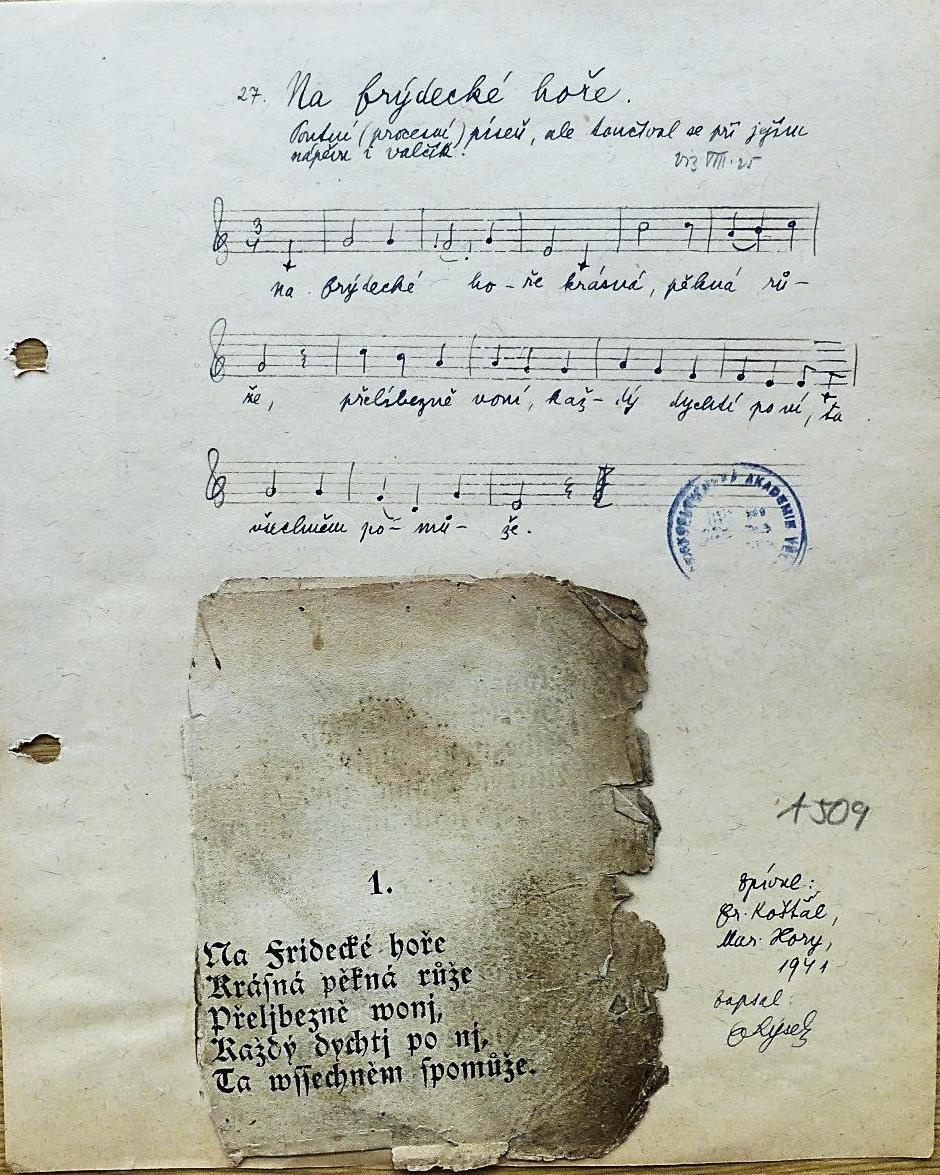 27. Na frýdecké hoře.
Poutní (procesní) píseň, ale tančíval se při jejím
nápěvu i valčík.
viz VIII. 25
3
4
Na frýdecké ho-ře krásná, pěkná rů-
že, přelíbezně voní, kaž-dý dychtí po ní, ta
všechněm po-mů-že.
AKADEMIE
1509
1.
Na Fridecké hoře
Krásná pěkná růže
Přeljbezně wonj,
Každý dychtj po nj,
Ta wſſechněm ſpomůže.
zpíval:
Fr. Koštál,
Mar. Hory,
1941
zapsal: